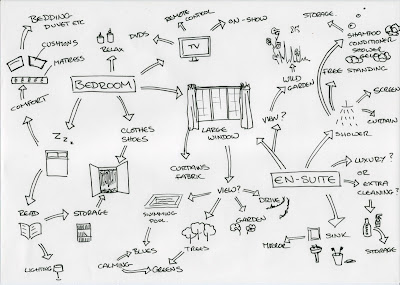 BEDDING
DUVET ETC
CUSHIONS
MATRESS
COMFORT
RELAX
DVDS
REMOTE
CONTROL
TV
ON-SHOW
STORAGE
SHAMPOO
CONDITIONER
SHOWER
GEL
FREE STANDING
WILD
GARDEN
SCREEN
CURTAIN
SHOWER
BEDROOM
Zz..
CLOTHES
SHOES
LARGE
WINDOW
VIEW?
CURTAINS
FABRIC
EN-SUITE
LUXURY?
OR
EXTRA
CLEANING?
READ
STORAGE
SWIMMING
POOL
VIEW?
DRIVE
GARDEN
TREES
BLUES
CALMING
GREENS
LIGHTING
MIRROR
SINK
STORAGE